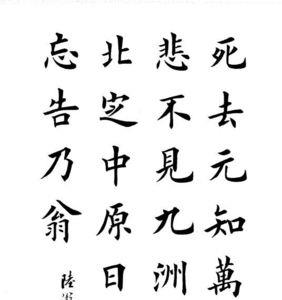 死去元知萬
悲不見九洲
北定中原日
忘告乃翁
陸游